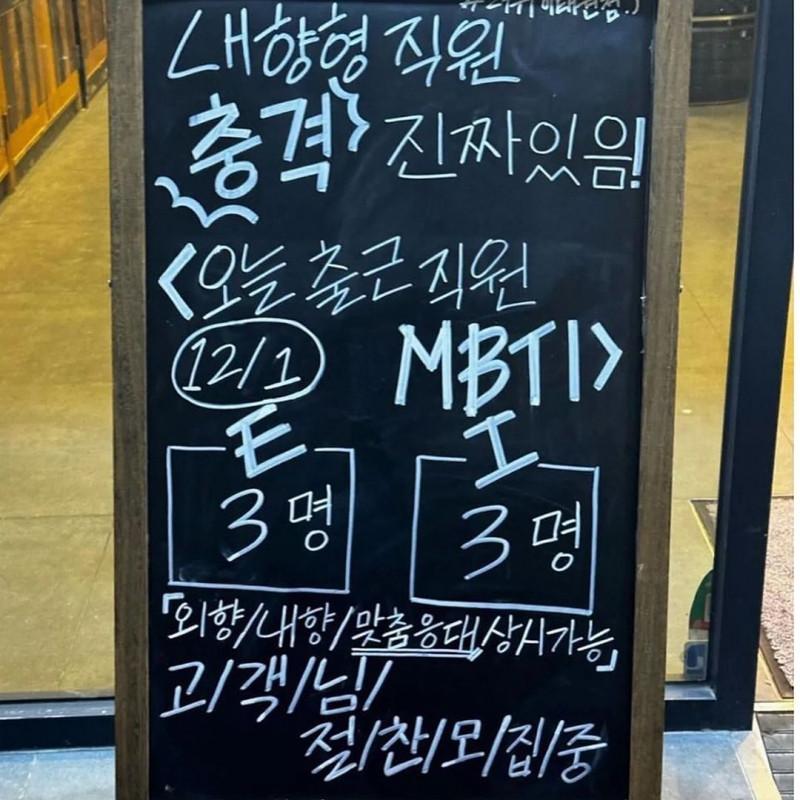 내향형 직원
충격 진짜있음!
<오늘 출근 직원
12/1 MBTI>
E I
3명 3명
「외향/내향/맞춤응대 상시가능」
고/객/님/
절/찬/모/집/중